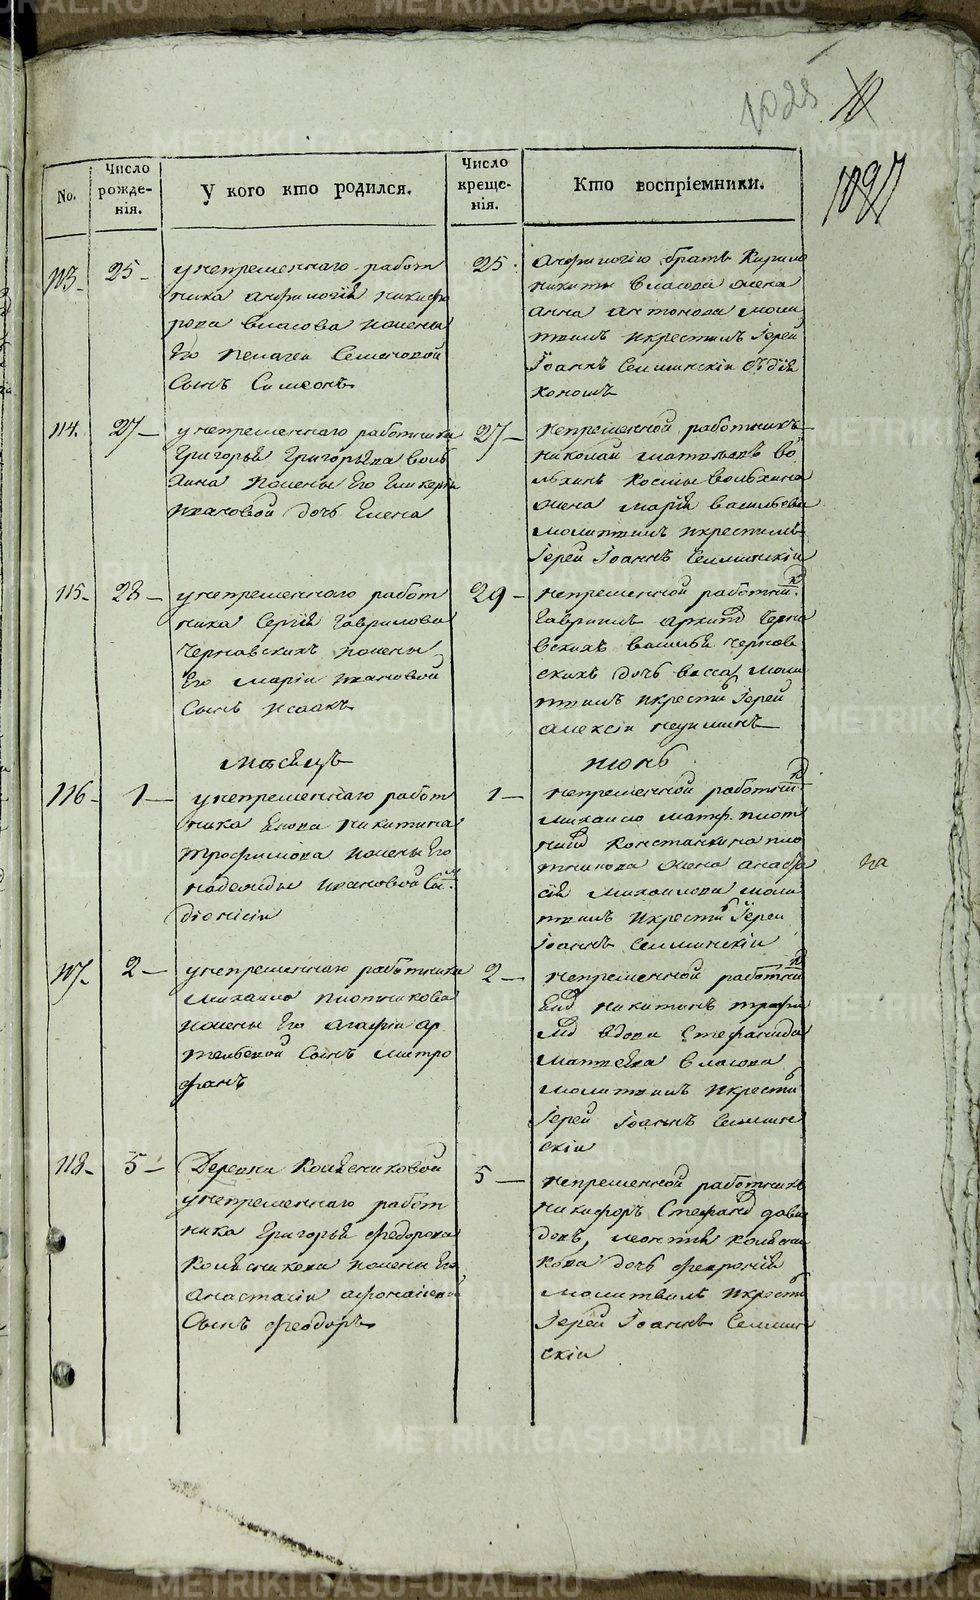 1025
1097
No.
Число рожде-нія.
У кого кто родился.
Число креще-нія.
Кто воспріемники.
113.
25
у непременнаго работ
ника
Никифо
рова Власова и жены
Его Пелагеи Семеновой
Сынъ Симеонъ
25
братъ Кирило
Никиты Власова жена
Анна Антонова моли
твилъ и крестилъ Іерей
Іоаннъ Селминскій съ дія
кономъ
114.
27
у непременнаго работника
Григорья Григорьева Воль
хина и жены Его Гликеріи
Ивановой дочь Елена
27
непременной работникъ
Николай во
льхинъ Космы Вольхина
жена Марія Васильева
молитвилъ и крестилъ
Іерей Іоаннъ Селминскій
115
28
у непременнаго работ
ника Сергія Гаврилова
Чернавскихъ и жены
Его Маріи Ивановой
Сынъ Исаакъ
29
непременной работник
Гаврилъ Черна
вскихъ Василья Чернав
скихъ дочь Васса, моли
твилъ и крестилъ Іерей
Алексій
Месяцъ
Июнь
116
1
у непременнаго работ
ника Никитина
Трофимова и жены Его
Надежды Ивановой Сы.
Діонисій
1
непременной работник
Михаило Плот
Константина пло
тникова жена Анаста
сія Михаилова моли
твилъ и крестилъ Іерей
Іоаннъ Селминскій
117
2
у непременнаго работника
Михаила Плотникова
и жены Его Агафіи Ар
темьевой Сынъ Митро
фанъ
2
непременной работник
Никитинъ Трофи
вдова Стефанида
Матвеева Власова
молитвилъ и крести
Іерей Іоаннъ Селмин
скій
118
5
Деревни Колесниковой
у непременнаго работ
ника Григорья Федорова
Колесникова и жены Его
Анастасіи Афонасіевой
Сынъ Феодоръ
5
непременной работникъ
Никифоръ Стефанов давы
довъ, Леонтья Колесни
кова дочь Февронія
молитвилъ и крести
Іерей Іоаннъ Селмин
скій
METRIKI.GASO-URAL.RU